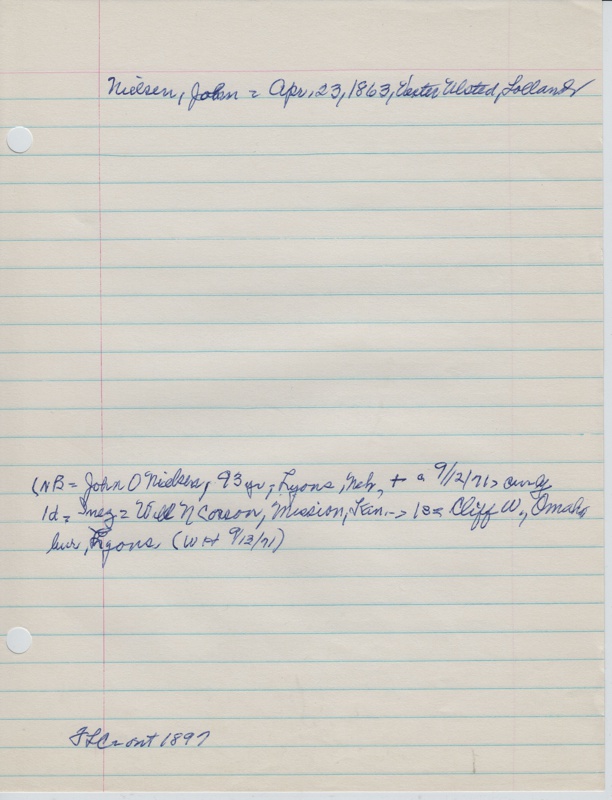 Nielsen, John = Apr. 23, 1863, Vester Ulsted, Lolland
(NB = John O Nielsen, 93 yr, Lyons, Neb, + a 9/12/71,
1d = Inez = Will N Corson, Mission, Kan. -> 1s = Cliff W., Omaha
bur, Lyons. (WH 9/13/71)
1897